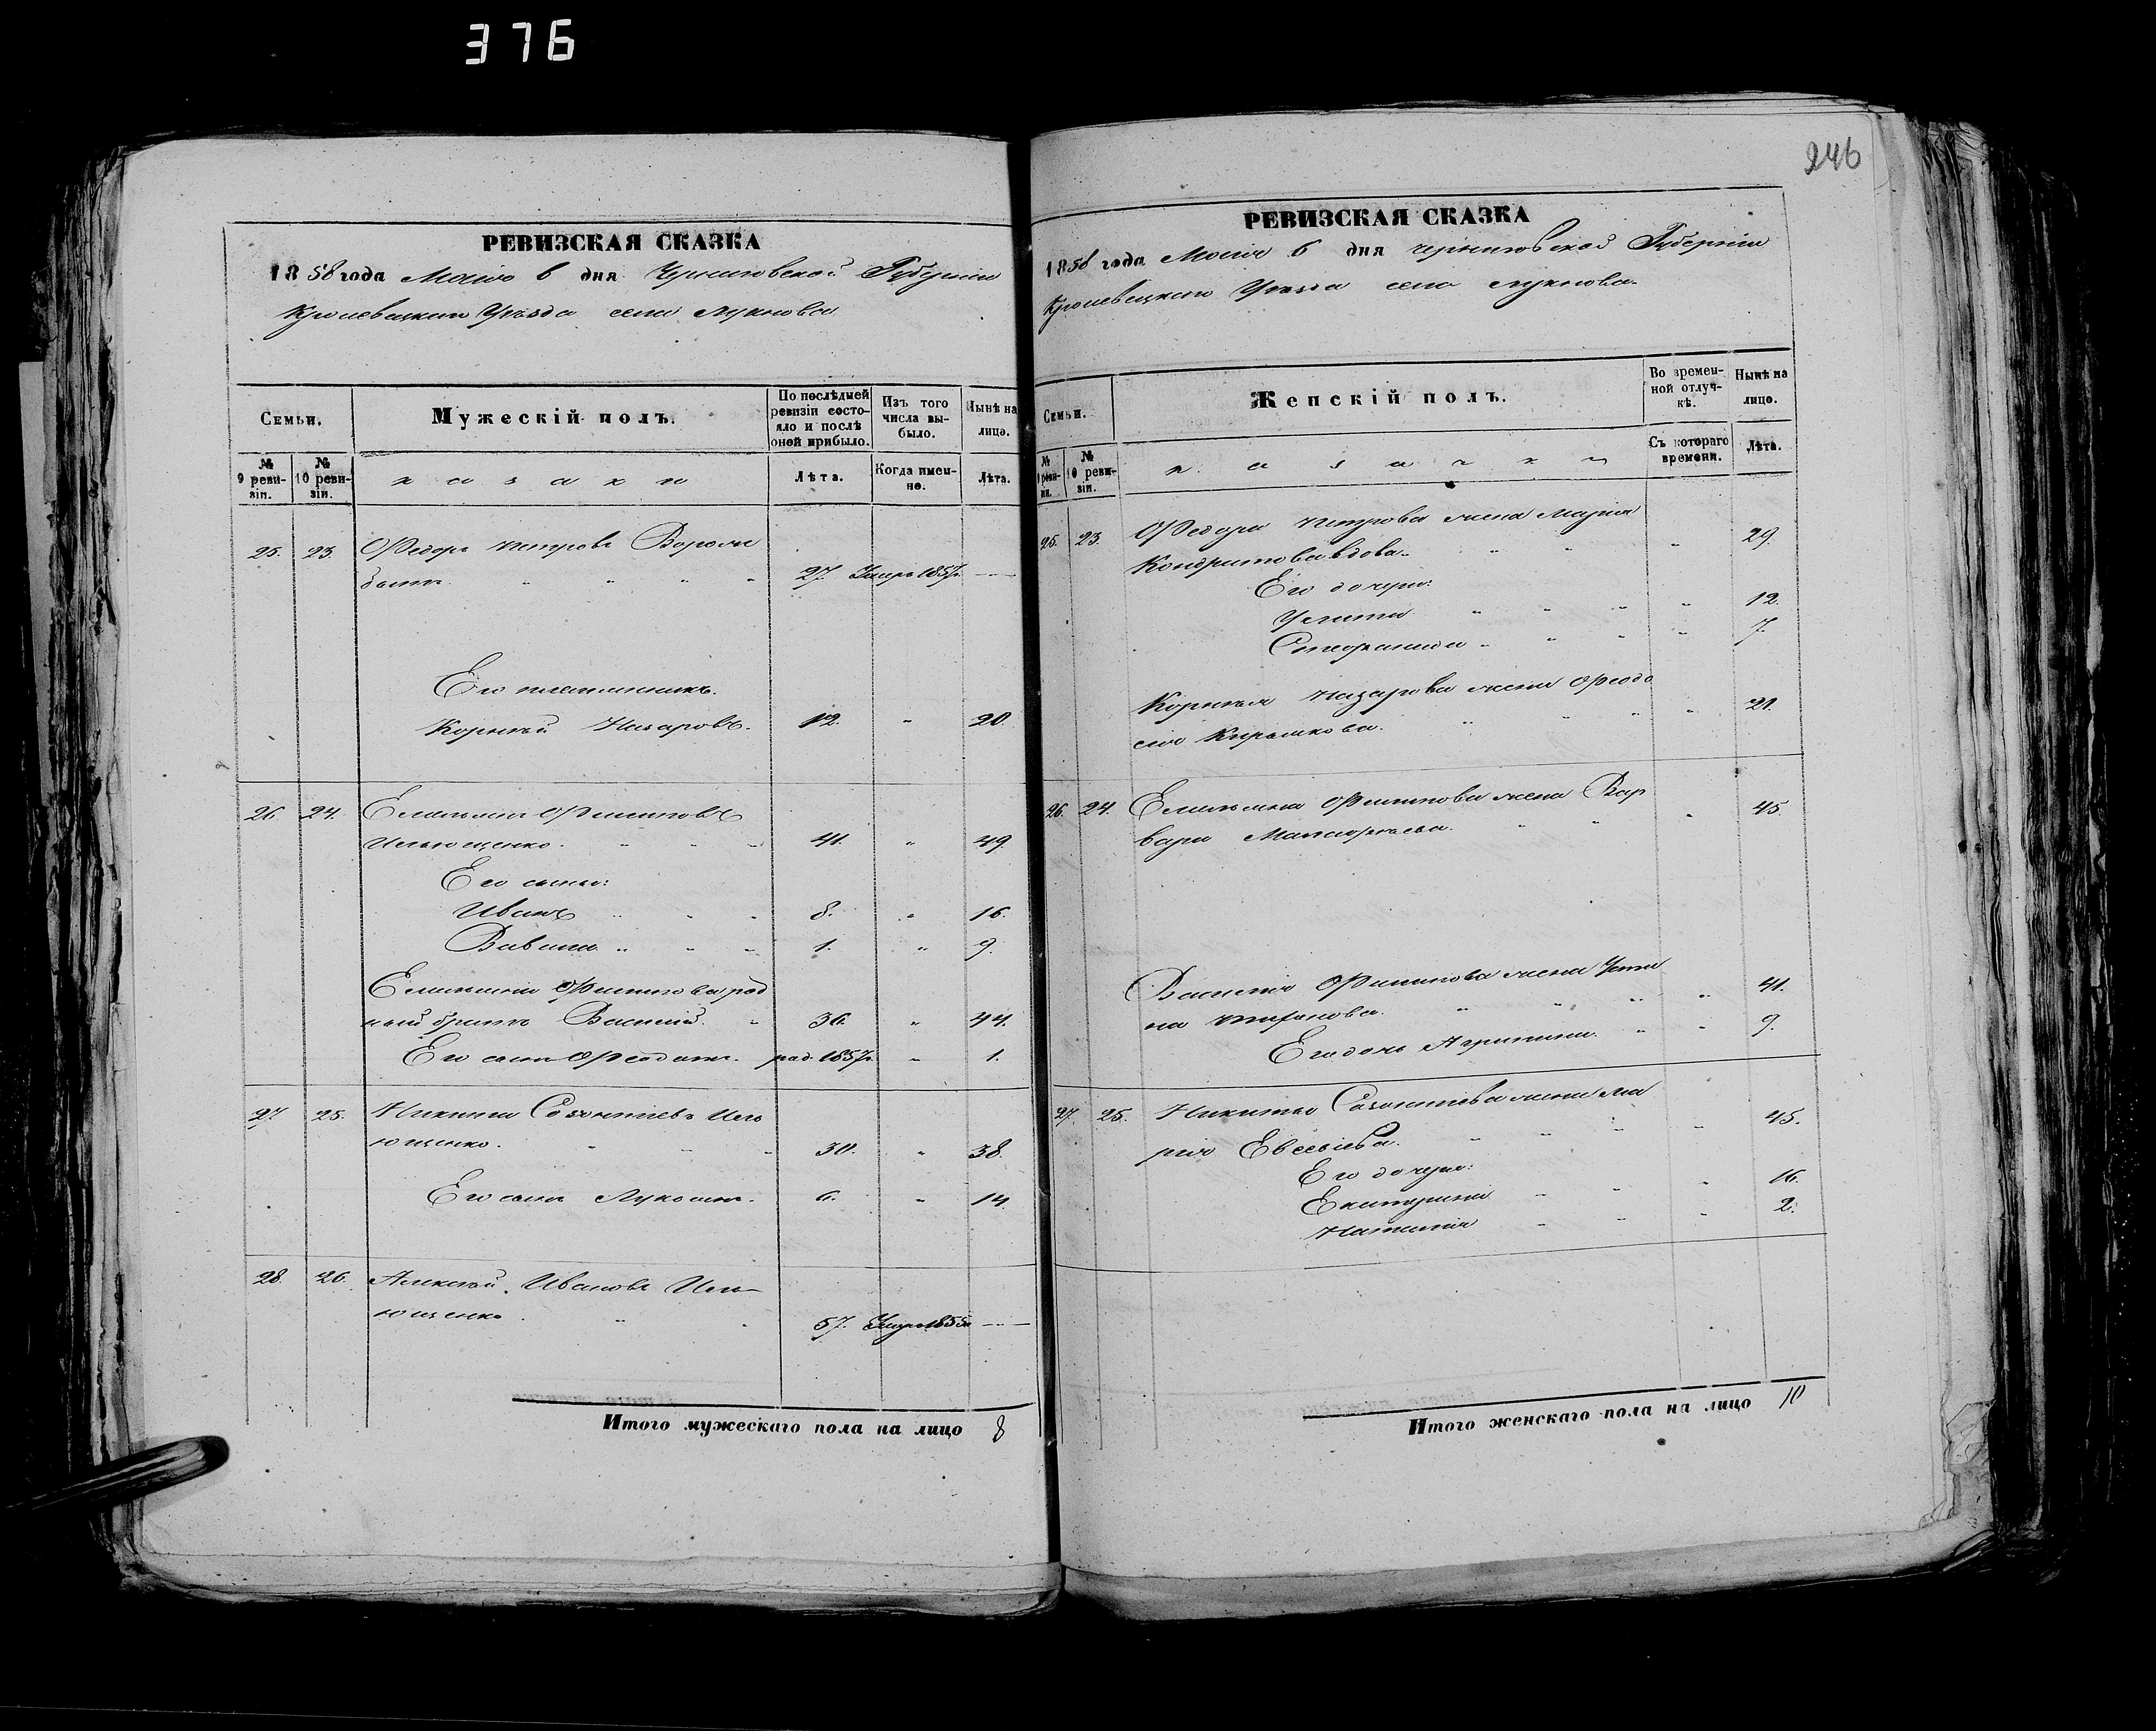 376
246
РЕВИЗСКАЯ СКАЗКА
1858 года Маія 6 дня Черниговской Губерніи
Кролевецкаго Уѣзда села Лукнова
Семьи.
Мужескій полъ.
По послѣдней ревизіи состояло и послѣ оной прибыло.
Изъ того числа выбыло.
Нынѣ на лицо.
№ 9 ревизіи.
№ 10 ревизіи.
казаки
Лѣта.
Когда именно.
Лѣта.
25. 23. Федоръ Петровъ
27. Умеръ 1857.
Его племянникъ.
Корнѣй Назаровъ. 12. " 20.
26. 24. Емельянъ Филиповъ
Ильющенко. 41. " 49.
Его сыны:
Иванъ 8. " 16.
Вавила 1. " 9.
Емельяна Филипова род
ный братъ Василій. 36. " 44.
Его сынъ Феодотъ. род. 1857. " 1.
27. 25. Никита Созонтіевъ Иль
ющенко. 30. " 38.
Его сынъ Лукьянъ. 6. " 14.
28. 26. Алексѣй Ивановъ Иль
ющенко 57. Умеръ 1855.
Итого мужескаго пола на лицо 8
РЕВИЗСКАЯ СКАЗКА
1858 года Маія 6 дня Черниговской Губерніи
Кролевецкаго Уѣзда села Лукнова.
Семьи.
Женскій полъ.
Во временной отлучкѣ.
Нынѣ на лицо.
№ 9 ревизіи.
№ 10 ревизіи.
казачки
Съ котораго времени.
Лѣта.
25. 23. Федора Петрова жена Марія
Кондратова вдова. 29.
Его дочери:
Улита 12.
Стефанида 7.
Корнѣя Назарова жена Феодо
сія 21.
26. 24. Емельяна Филипова жена Вар
вара 45.
Василія Филипова жена Усти
на 41.
Его дочь Агрипина. 9.
27. 25. Никиты Созонтіева жена Ма
рія Евсевіева. 45.
Его дочери:
Екатерина 16.
Наталія 2.
Итого женскаго пола на лицо 10